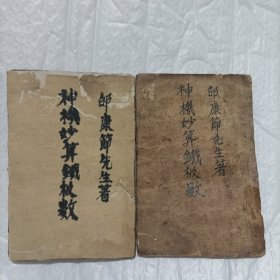 邵康節先生著
神機妙算鐵板數
邵康節先生著
神機妙算鐵板數